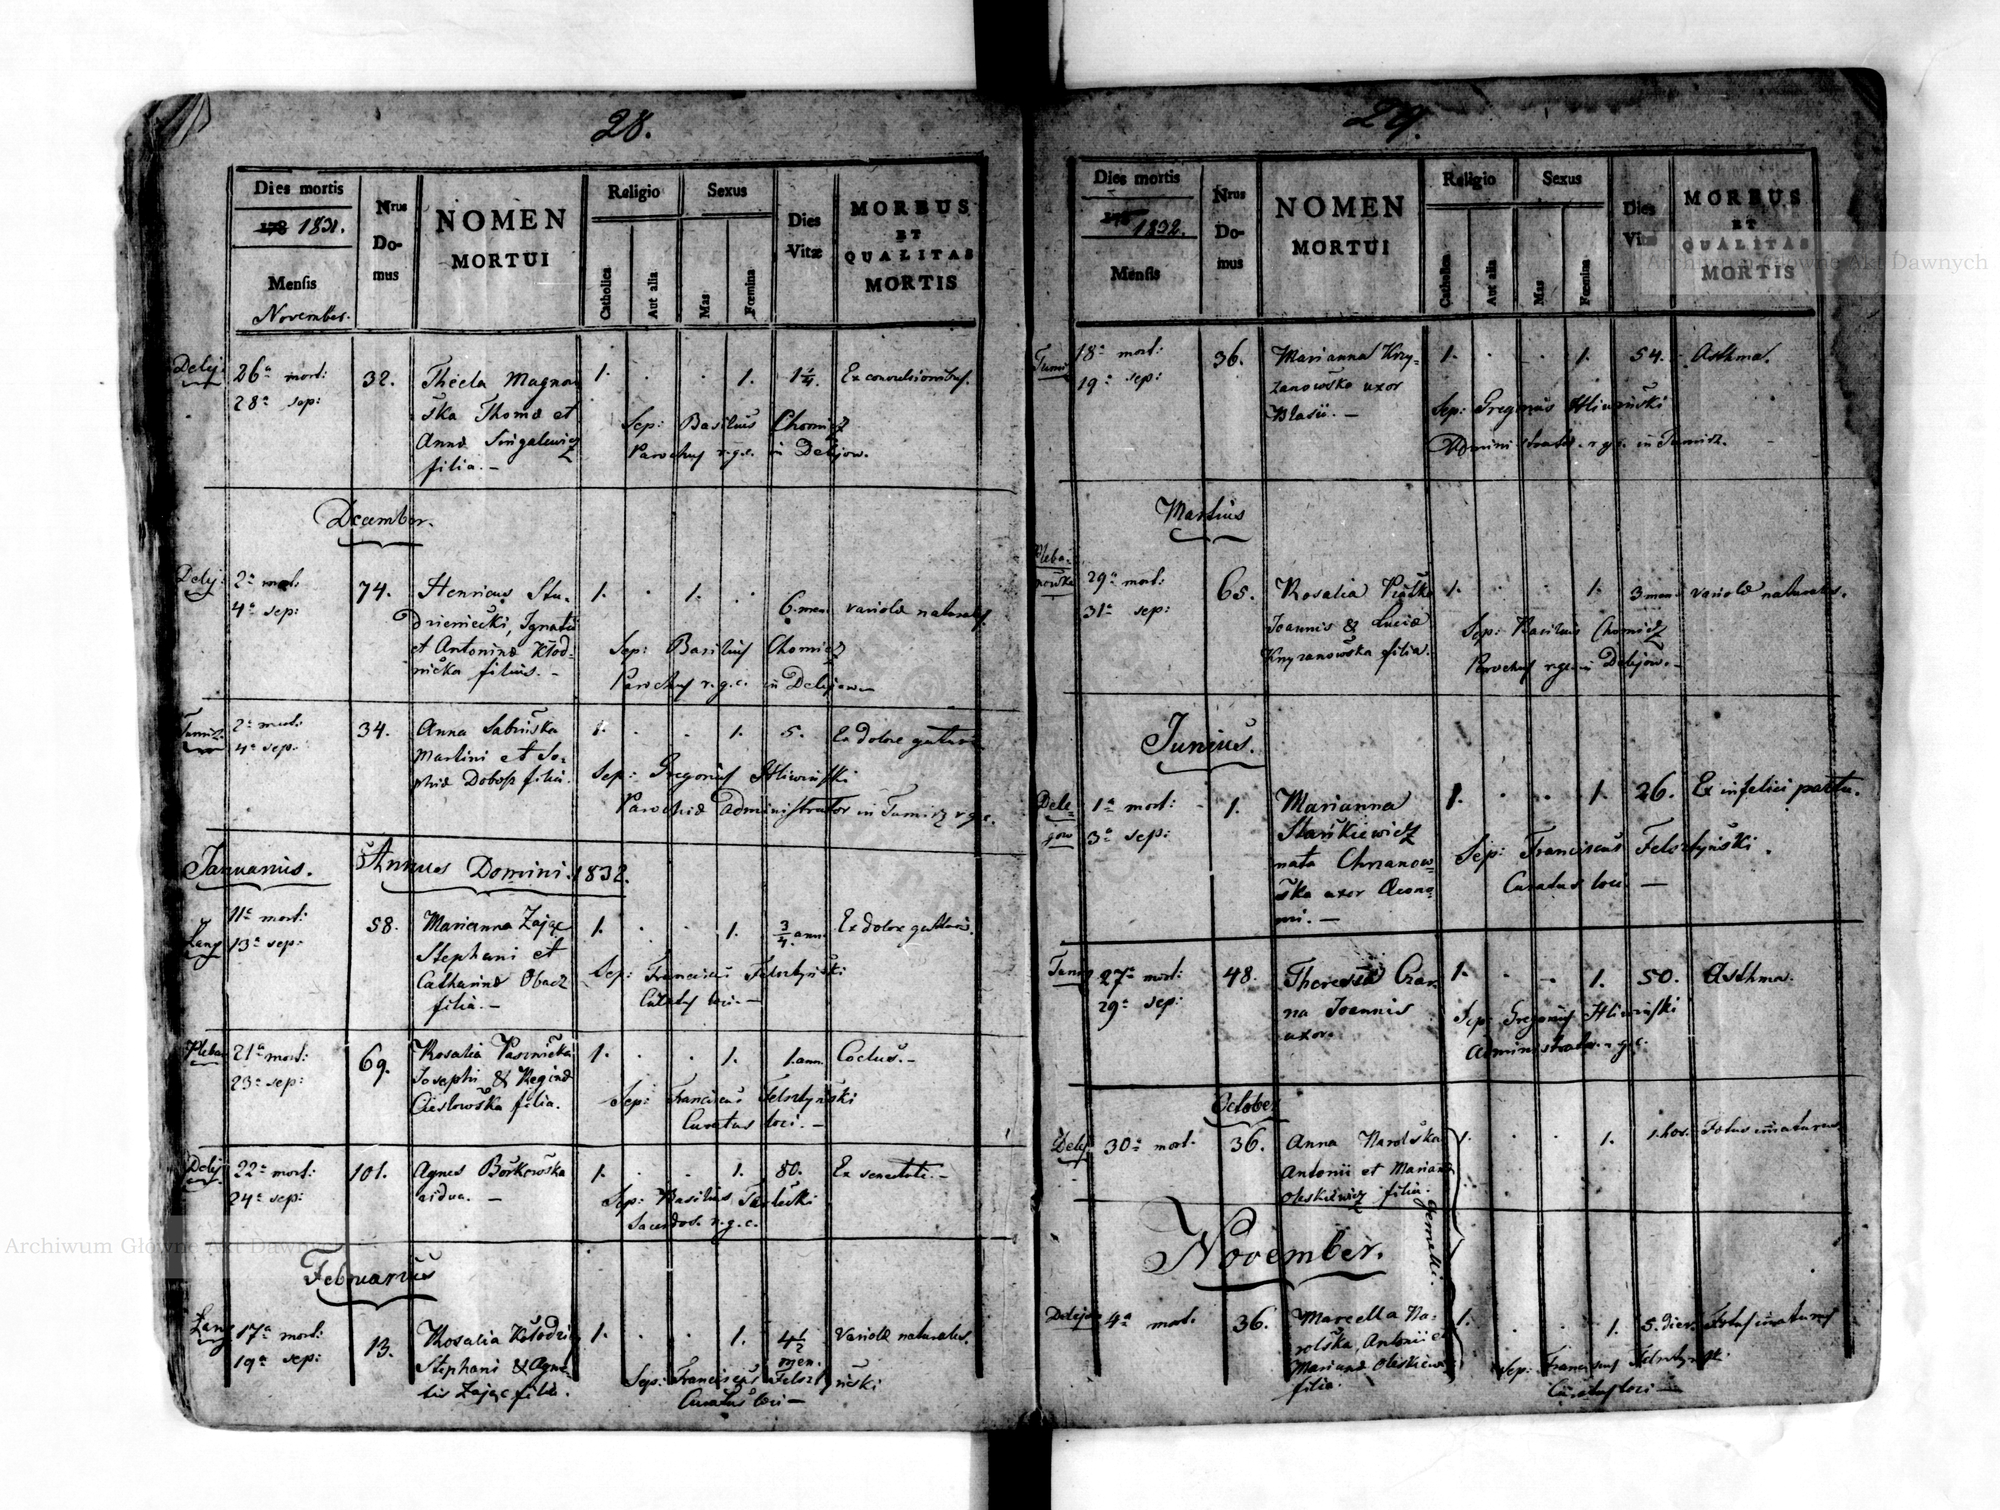 28.
Dies mortis
178 1831.
Mensis
November.
Nrus
Do-
mus
NOMEN
MORTUI
Religio
Catholica
Aut alia
Sexus
Mas
Foemina
Dies
Vitæ
MORBUS
ET
QUALITAS
MORTIS
Delij:
26ª mort:
28ª sep:
32.
Thecla Magnow
ska Thomæ et
Annæ Singalewicz
filia. —
1. . . 1. 1¼. Ex convulsionibus.
Sep: Basilius Chomicz
Parochus r.g.c. in Delijow.
December.
Delij:
2ª mort:
4ª sep:
74.
Henricus Stu-
dzieniecki, Ignatii
et Antoninæ Kłod-
nicka filius. —
1. . 1. . 6. men. variolæ naturales
Sep: Basilius Chomicz
Parochus r.g.c. in Delijow —
Tumirz
2ª mort:
4ª sep:
34.
Anna Sabinska
Martini et So-
phiæ Dobosz filia.
1. . . 1. 5. Ex dolore gutturis
Sep: Gregorius Hliwinski
Parochiæ administrator in Tumirz r.g.c.
Januarius. Annus Domini 1832.
Lany
11ª mort:
13ª sep:
58.
Marianna Zając
Stephani et
Catharinæ Obacz
filia. —
1. . . 1. ¾ ann. Ex dolore gutturis.
Sep: Franciscus Felsztyński
Curatus loci. —
Pleba
21ª mort:
23ª sep:
69.
Rosalia Pasznicka
Josephi & Reginæ
Cieslowska filia.
1. . . 1. 1. ann. Coctus. —
Sep: Franciscus Felsztyński
Curatus loci. —
Delij
22ª mort:
24ª sep:
101.
Agnes Borkowska
vidua. —
1. . . 1. 80. Ex senectute. —
Sep: Basilius
Sacerdos r.g.c.
Februarius
Lany
17ª mort:
19ª sep:
13.
Rosalia Kołodziej
Stephani & Agne-
tis Zając filia.
1. . . 1. 4½ men. Variolæ naturales.
Sep: Franciscus Felsztyński
Curatus loci —
29.
Dies mortis
178 1832.
Mensis
Nrus
Do-
mus
NOMEN
MORTUI
Religio
Catholica
Aut alia
Sexus
Mas
Foemina
Dies
Vitæ
MORBUS
ET
QUALITAS
MORTIS
Tumir
18ª mort:
19ª sep:
36.
Marianna Krzy-
żanowska uxor
Blasii. —
1. . . 1. 54. Asthma.
Sep: Gregorius Hliwinski
Administrator r.g.c. in Tumirz.
Martius
Pleba-
nowka
29ª mort:
31ª sep:
65.
Rosalia Piątko
Joannis & Luciæ
Krzyzanowska filia.
1. . . 1. 3 men. variolæ naturales.
Sep: Basilius Chomicz
Parochus r.g.c. in Delijow. —
Junius.
Dele-
jow
1ª mort:
3ª sep:
1.
Marianna
Stańkiewicz
nata Chrzanow-
ska uxor Œcono-
mi. —
1. . . 1. 26. Ex infelici partu.
Sep: Franciscus Felsztyński.
Curatus loci —
Tumirz
27ª mort:
29ª sep:
48.
Theresia Czar-
na Joannis
uxor.
1. . . 1. 50. Asthma.
Sep: Gregorius Hliwinski
Administrator r.g.c.
October
Delij
30ª mort.
36.
Anna Narolska
Antonii et Mariannæ
Oleskiewicz filia.
1. . . 1. 1. hor. Fœtus immaturus
gemelli.
November.
Delejow
4ª mort.
36.
Marcella Na-
rolska, Antonii et
Mariannæ Oleskiewicz
filia.
1. . . 1. 5. dier. Fœtus immaturus
Sep: Franciscus Felsztyński
Curatus loci —
Archiwum Główne Akt Dawnych
Archiwum Główne Akt Dawnych